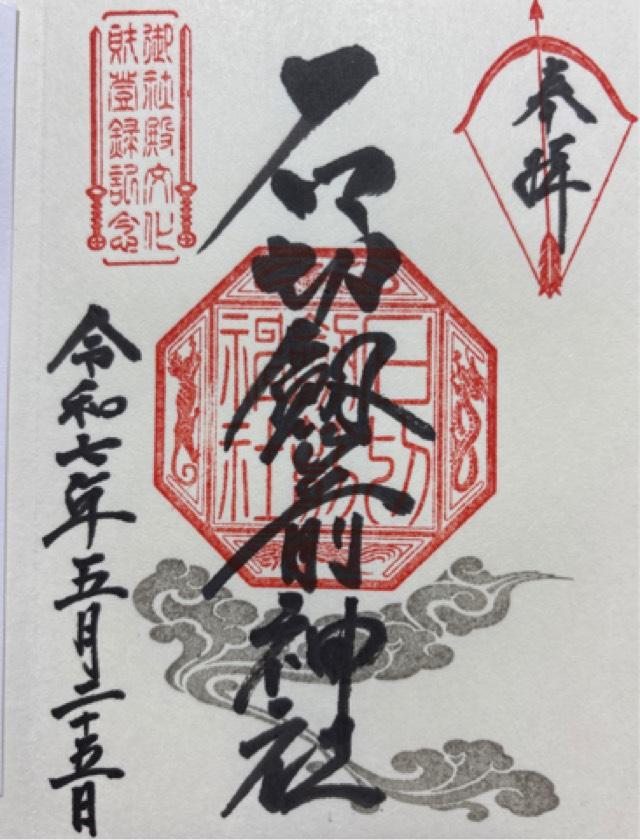 奉拝
石切劔箭神社
石切劔箭神社
御社殿文化
財登録記念
令和七年五月二十五日